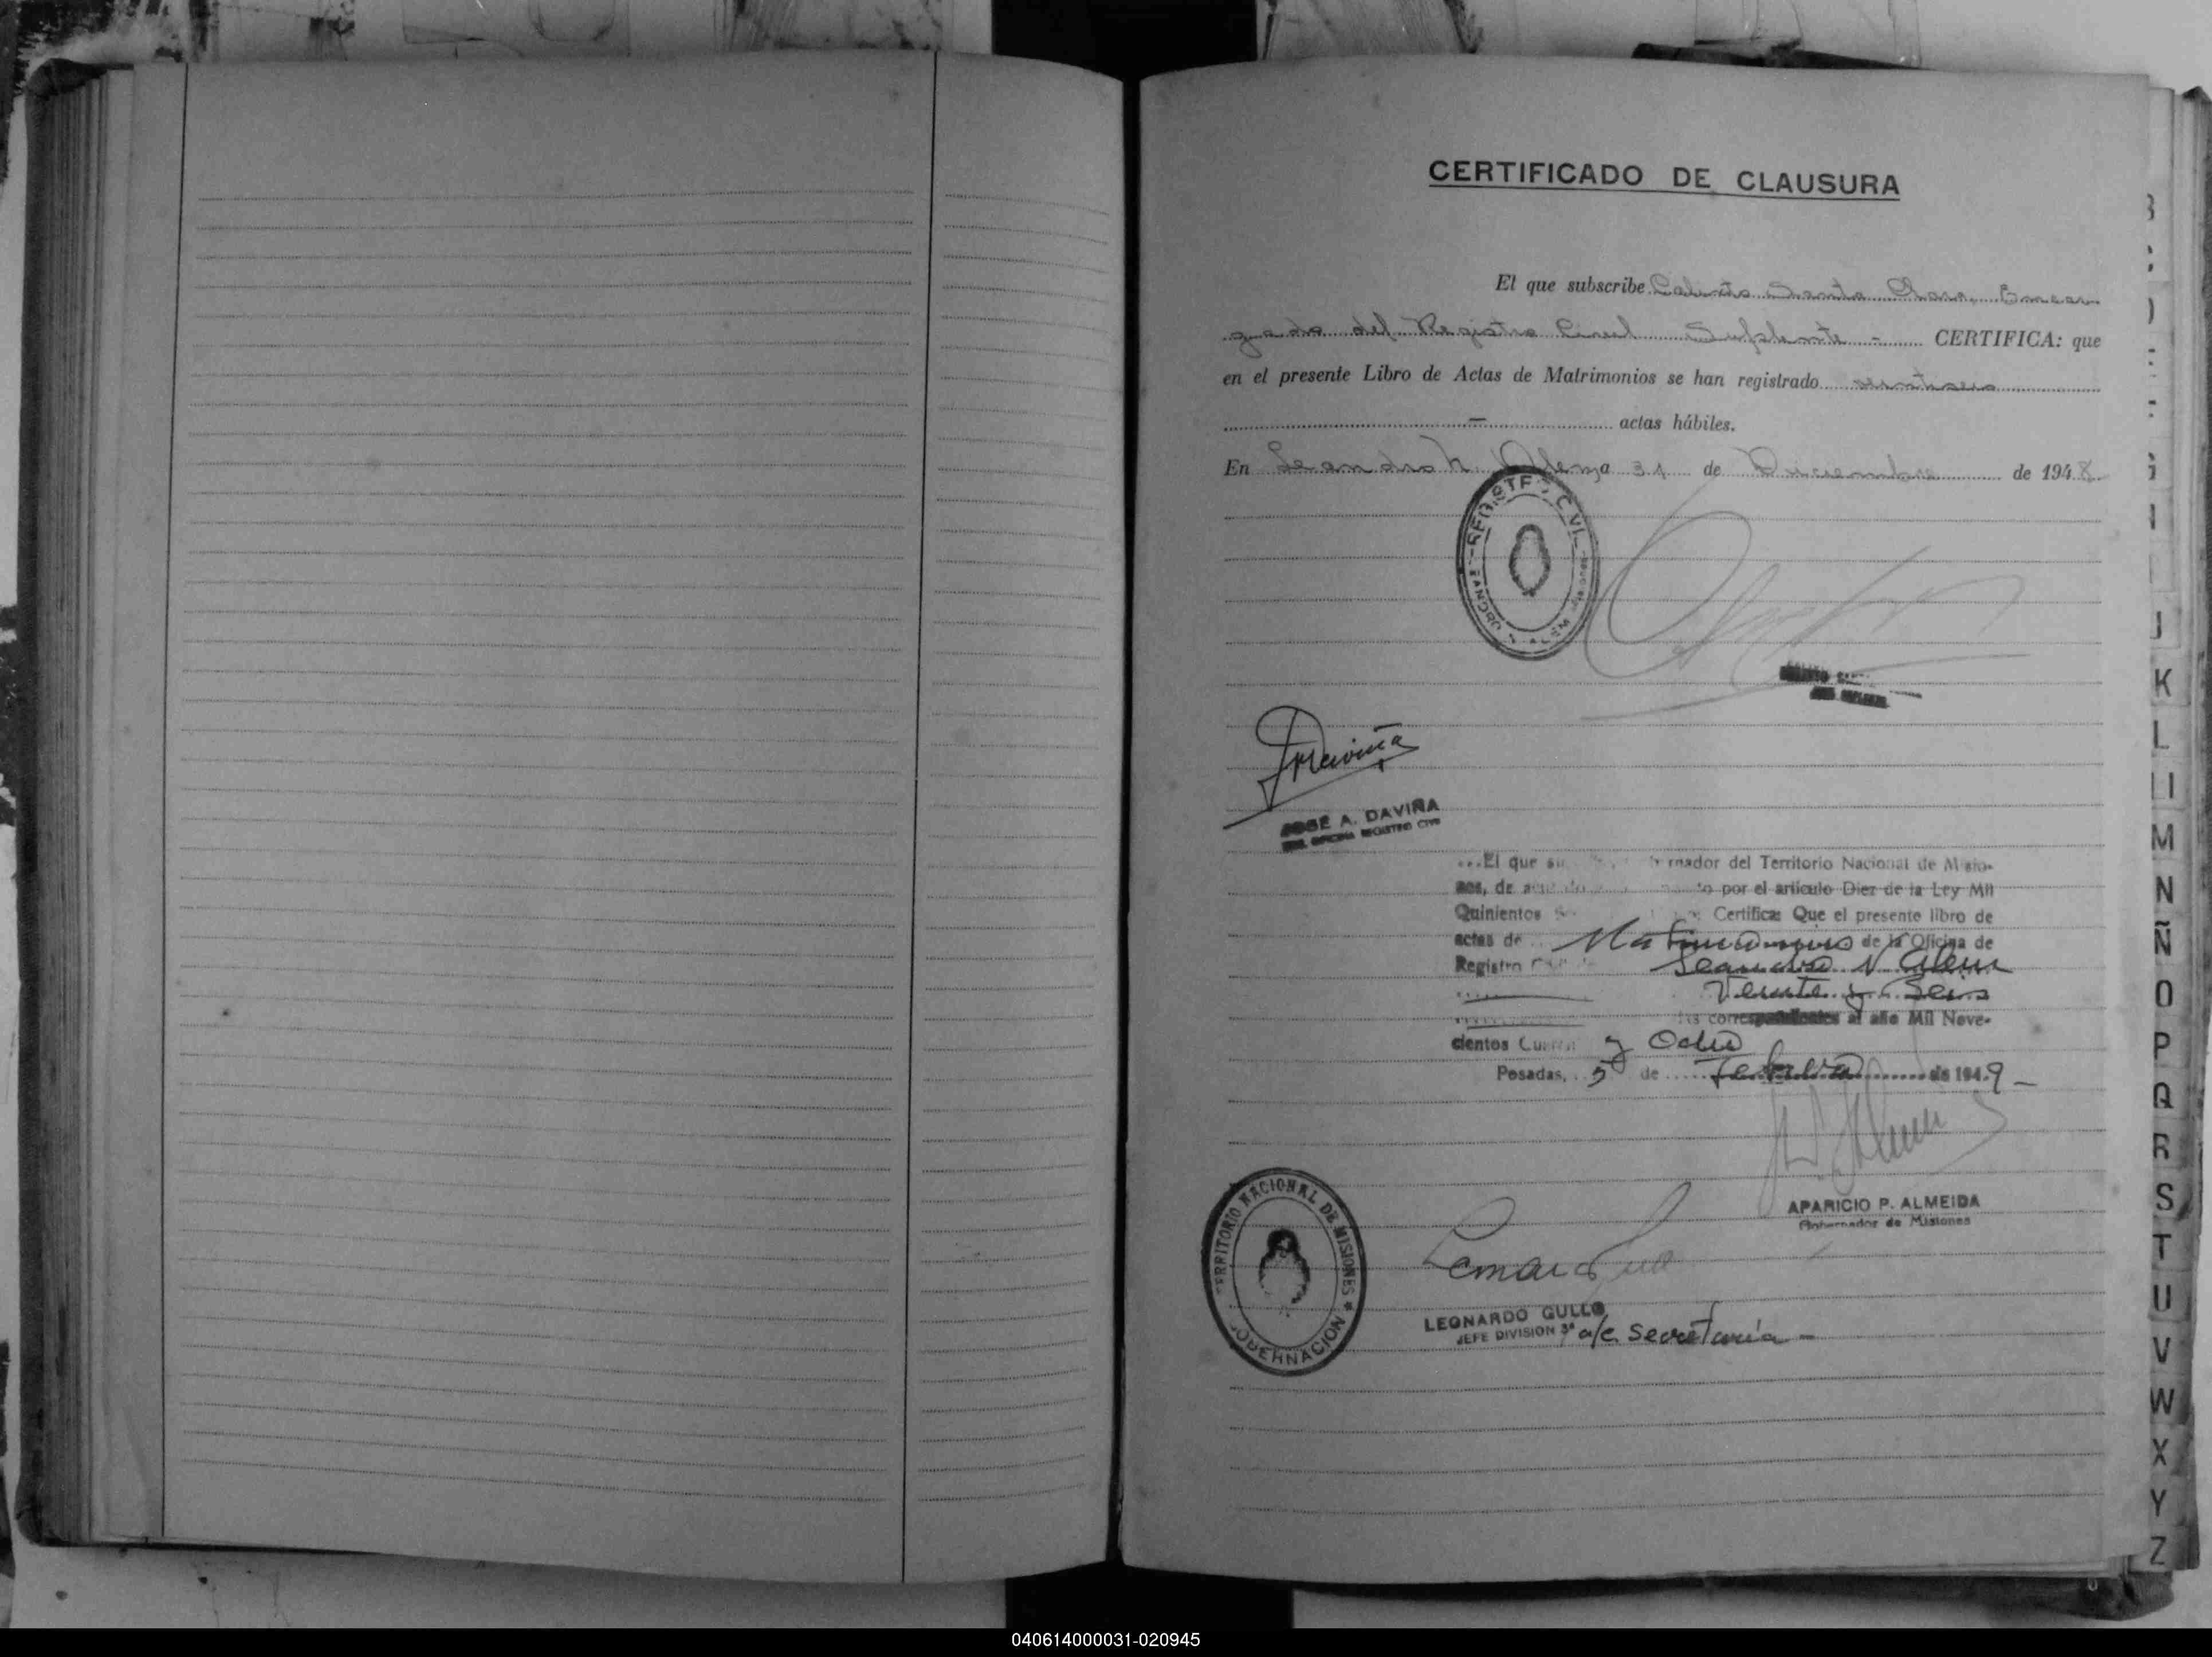 CERTIFICADO DE CLAUSURA
El que subscribe Calixto Santa Clara, Encar
gado del Registro Civil Suplente - CERTIFICA: que
en el presente Libro de Actas de Matrimonios se han registrado veintiseis
- actas hábiles.
En Leandro N. Alem a 31 de Diciembre de 1948
REGISTRO CIVIL
JOSE A. DAVIÑA
OFICINA REGISTRO CIVIL
El que mador del Territorio Nacional de Misio-
nes, de por el artículo Diez de la Ley Mil
Quinientos Certifica: Que el presente libro de
actas de Matrimonios de la Oficina de
Registro Leandro N. Alem
Veinte y Seis
correspondientes al año Mil Nove-
cientos y Ocho
Posadas, 5 de Febrero de 1949 -
APARICIO P. ALMEIDA
Gobernador de Misiones
TERRITORIO NACIONAL DE MISIONES * GOBERNACION
LEONARDO GULLO
JEFE DIVISION 3ª a/c. Secretaría -
B
C
D
E
F
G
I
J
K
L
Ll
M
N
Ñ
O
P
Q
R
S
T
U
V
W
X
Y
Z
040614000031-020945